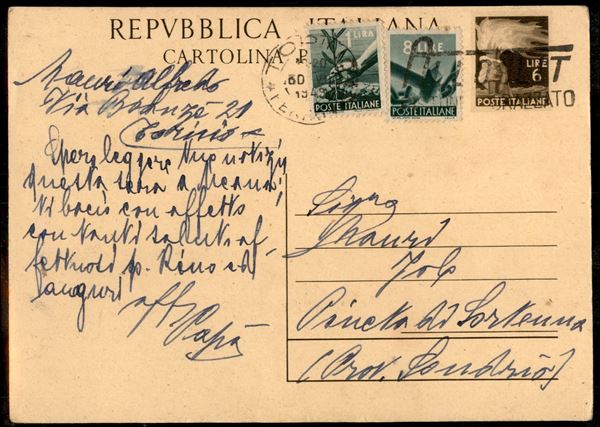 REPVBBLICA ITALIANA
CARTOLINA P
1 LIRA
POSTE ITALIANE
8 LIRE
POSTE ITALIANE
LIRE
6
POSTE ITALIANE
TO
60
19
Mauri Alfredo
Via 21
Torino
Spero leggere tue notizie
questa sera a
ti bacio con affetto
con tanti saluti af
fettuosi p. ed
auguri
aff
Papà
Sig.ra
Mauri
Pineta di Sortenna
(Prov. Sondrio)